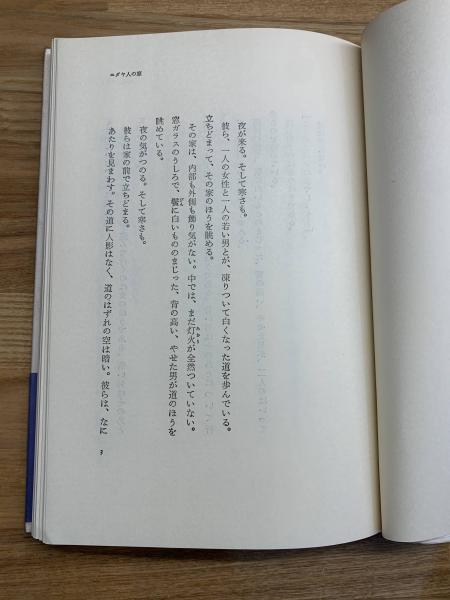 ユダヤ人の家
夜が来る。そして寒さも。
彼ら、一人の女性と一人の若い男とが、凍りついて白くなった道を歩んでいる。
立ちどまって、その家のほうを眺める。
その家は、内部も外側も飾り気がない。中では、まだ灯火が全然ついていない。
窓ガラスのうしろで、鬢に白いもののまじった、背の高い、やせた男が道のほうを
眺めている。
夜の気がつのる。そして寒さも。
彼らは家の前で立ちどまる。
あたりを見まわす。その道に人影はなく、道のはずれの空は暗い。彼らは、なに
3